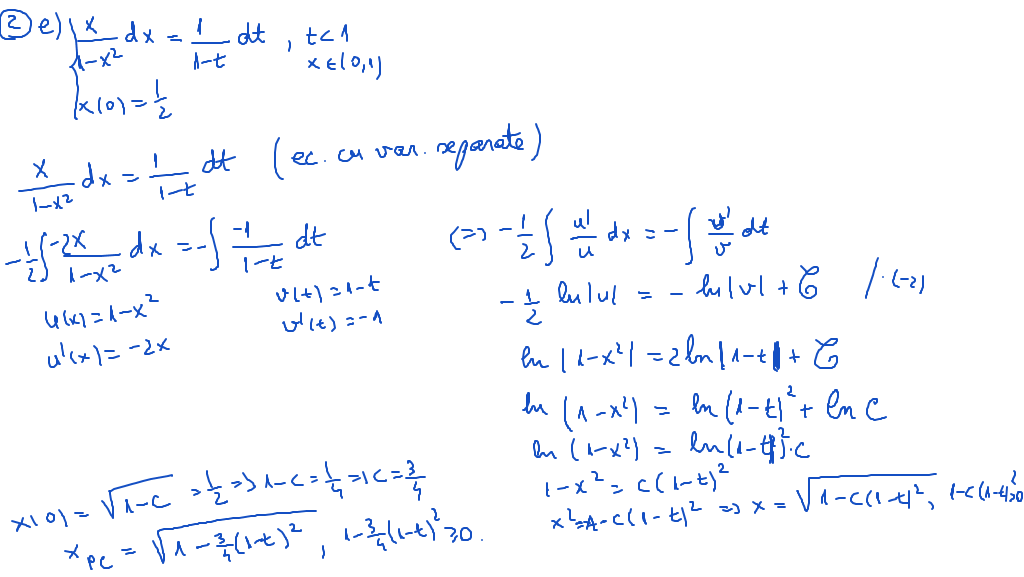 ② e) { x/(1-x²) dx = 1/(1-t) dt , t<1
x ∈ (0,1)
x(0) = 1/2
x/(1-x²) dx = 1/(1-t) dt (ec. cu var. separate)
-1/2 ∫ -2x/(1-x²) dx = -∫ -1/(1-t) dt
u(x) = 1-x² v(t) = 1-t
u'(x) = -2x v'(t) = -1
(=) -1/2 ∫ u'/u dx = -∫ v'/v dt
-1/2 ln|u| = -ln|v| + C /·(-2)
ln|1-x²| = 2ln|1-t| + C
ln(1-x²) = ln(1-t)² + ln C
ln(1-x²) = ln(1-t)²·C
1-x² = C(1-t)²
x² = 1-C(1-t)² => x = √(1-C(1-t)²), 1-C(1-t)²≥0
x(0) = √(1-C) = 1/2 => 1-C = 1/4 => C = 3/4
x_PC = √(1-3/4(1-t)²) , 1-3/4(1-t)² ≥0.